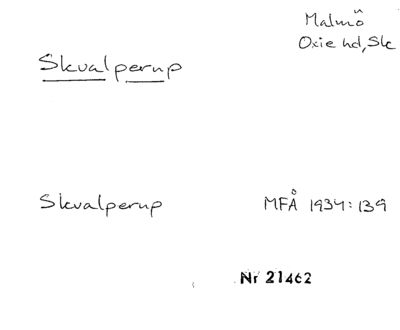 Malmö
Oxie hd, Sk
Skvalperup
Skvalperup MFÅ 1934:139
Nr 21462